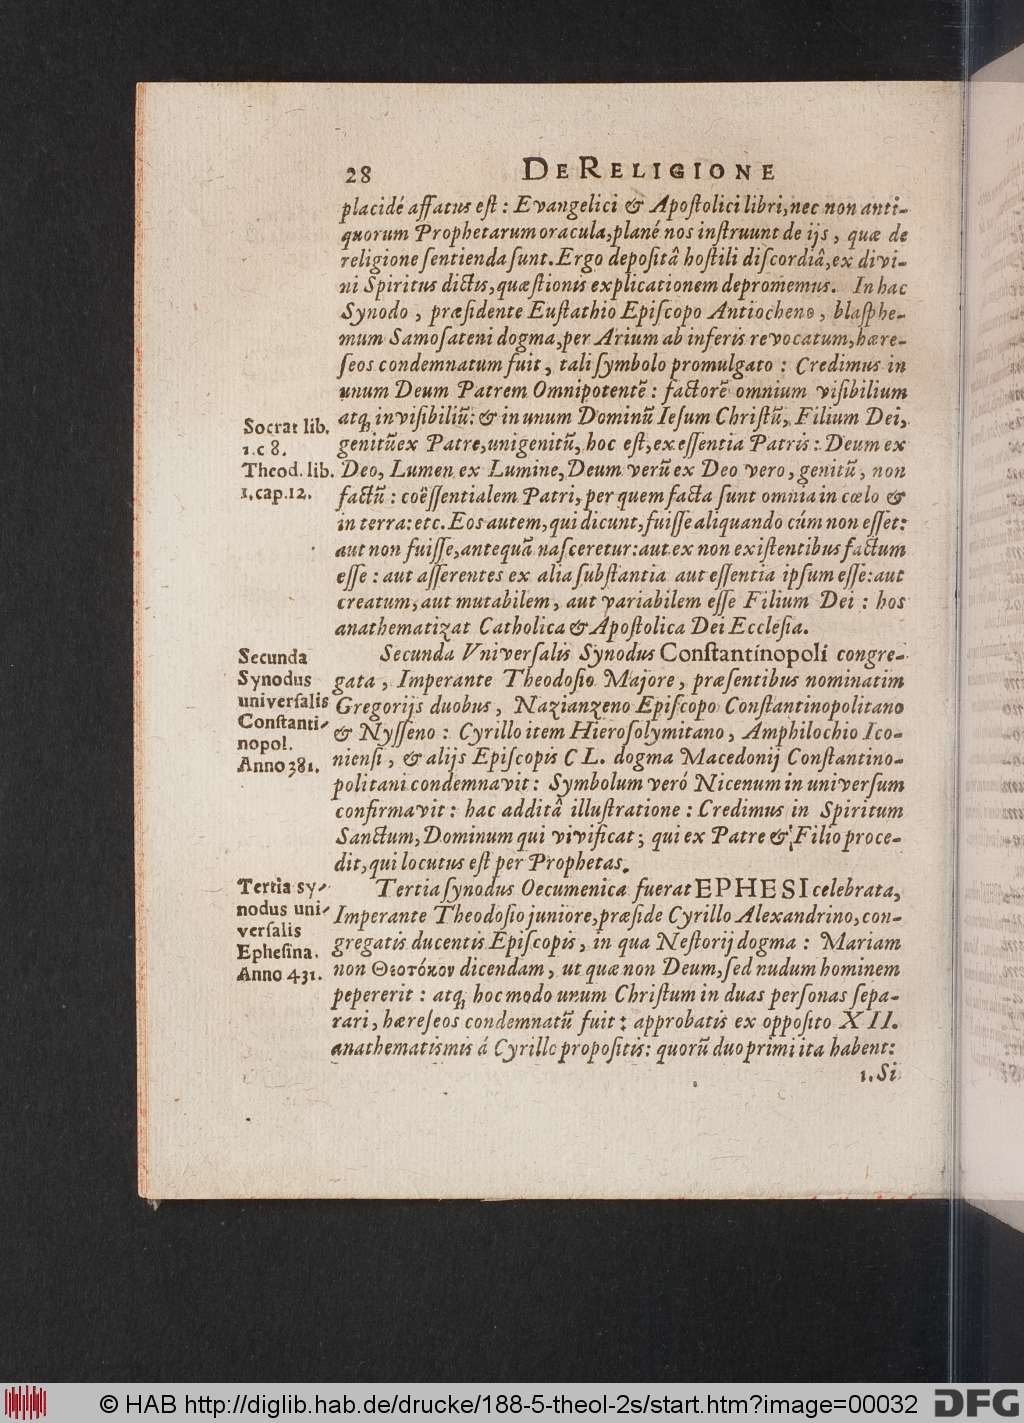 28 DE RELIGIONE
placidé affatus est : Evangelici & Apostolici libri, nec non anti-
quorum Prophetarum oracula, plané nos instruunt de ijs, quæ de
religione sentienda sunt. Ergo depositâ hostili discordiâ, ex divi-
ni Spiritus dictis, quæstionis explicationem depromemus. In hac
Synodo, præsidente Eustathio Episcopo Antiocheno, blasphe-
mum Samosateni dogma, per Arium ab inferis revocatum, hære-
seos condemnatum fuit, tali symbolo promulgato : Credimus in
unum Deum Patrem Omnipotentẽ : factorẽ omnium visibilium
atq; invisibiliũ: & in unum Dominũ Iesum Christũ, Filium Dei,
Socrat lib.
1.c 8.
genitũ ex Patre, unigenitũ, hoc est, ex essentia Patris : Deum ex
Theod. lib.
1.cap.12.
Deo, Lumen ex Lumine, Deum verũ ex Deo vero, genitũ, non
factũ : coëssentialem Patri, per quem facta sunt omnia in cœlo &
in terra: etc. Eos autem, qui dicunt, fuisse aliquando cúm non esset:
aut non fuisse, antequã nasceretur: aut ex non existentibus factum
esse : aut asserentes ex alia substantia aut essentia ipsum esse: aut
creatum, aut mutabilem, aut variabilem esse Filium Dei : hos
anathematizat Catholica & Apostolica Dei Ecclesia.
Secunda
Synodus
universalis
Constanti-
nopol.
Anno 381.
Secunda Vniversalis Synodus Constantinopoli congre-
gata, Imperante Theodosio Majore, præsentibus nominatim
Gregorijs duobus, Nazianzeno Episcopo Constantinopolitano
& Nysseno : Cyrillo item Hierosolymitano, Amphilochio Ico-
niensi, & alijs Episcopis CL. dogma Macedonij Constantino-
politani condemnavit : Symbolum veró Nicenum in universum
confirmavit : hac additâ illustratione : Credimus in Spiritum
Sanctum, Dominum qui vivificat; qui ex Patre & Filio proce-
dit, qui locutus est per Prophetas.
Tertia sy-
nodus uni-
versalis
Ephesina.
Anno 431.
Tertia synodus Oecumenica fuerat EPHESI celebrata,
Imperante Theodosio juniore, præside Cyrillo Alexandrino, con-
gregatis ducentis Episcopis, in qua Nestorij dogma : Mariam
non Θεοτόκον dicendam, ut quæ non Deum, sed nudum hominem
pepererit : atq; hoc modo unum Christum in duas personas sepa-
rari, hæreseos condemnatũ fuit : approbatis ex opposito XII.
anathematismis á Cyrillo propositis: quorũ duo primi ita habent:
1. Si
© HAB http://diglib.hab.de/drucke/188-5-theol-2s/start.htm?image=00032
DFG